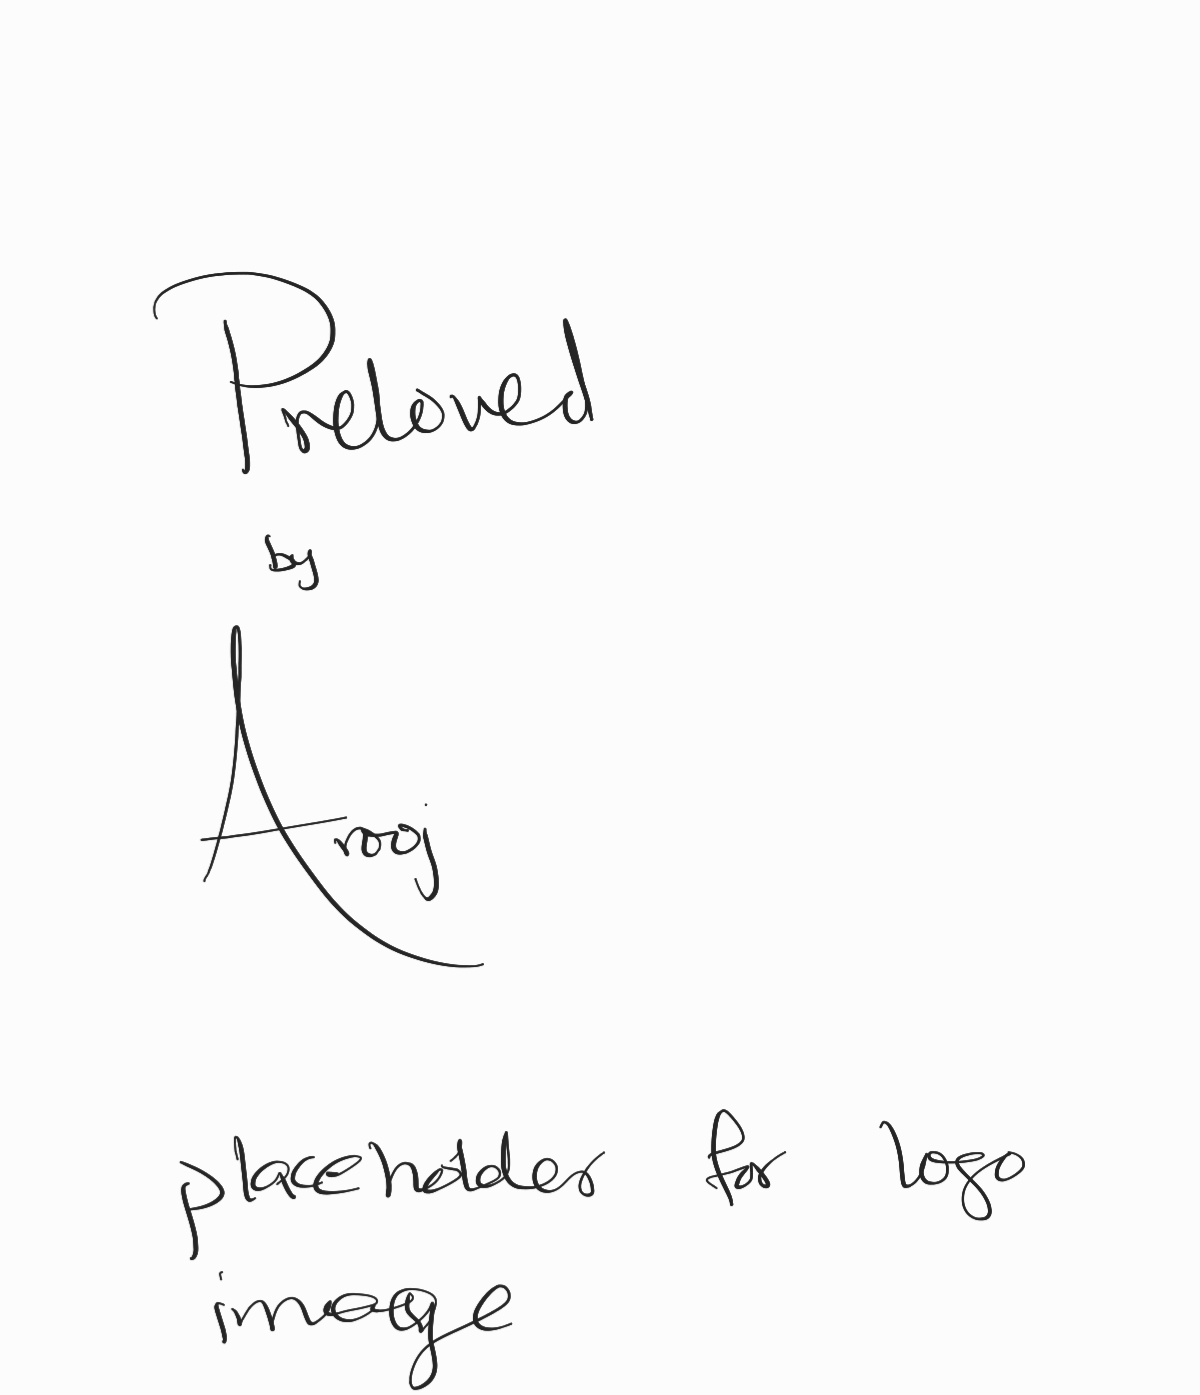 Preloved
by
Arooj
placeholder for logo
image